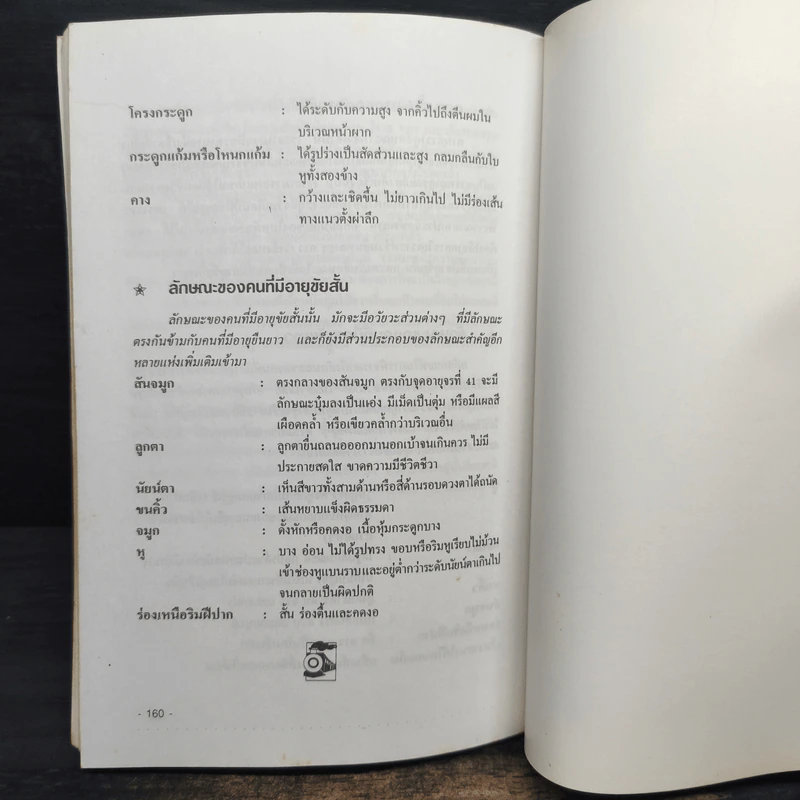 โครงกระดูก : ได้ระดับกับความสูง จากคิ้วไปถึงตีนผมใน
บริเวณหน้าผาก
กระดูกแก้มหรือโหนกแก้ม : ได้รูปร่างเป็นสัดส่วนและสูง กลมกลืนกับใบ
หูทั้งสองข้าง
คาง : กว้างและเชิดขึ้น ไม่ยาวเกินไป ไม่มีร่องเส้น
ทางแนวตั้งผ่าลึก
ลักษณะของคนที่มีอายุขัยสั้น
ลักษณะของคนที่มีอายุขัยสั้นนั้น มักจะมีอวัยวะส่วนต่างๆ ที่มีลักษณะ
ตรงกันข้ามกับคนที่มีอายุยืนยาว และก็ยังมีส่วนประกอบของลักษณะสำคัญอีก
หลายแห่งเพิ่มเติมเข้ามา
สันจมูก : ตรงกลางของสันจมูก ตรงกับจุดอายุจรที่ 41 จะมี
ลักษณะบุ๋มลงเป็นแอ่ง มีเม็ดเป็นตุ่ม หรือมีแผลสี
เผือดคล้ำ หรือเขียวคล้ำกว่าบริเวณอื่น
ลูกตา : ลูกตายื่นถลนอออกมานอกเบ้าจนเกินควร ไม่มี
ประกายสดใส ขาดความมีชีวิตชีวา
นัยน์ตา : เห็นสีขาวทั้งสามด้านหรือสี่ด้านรอบดวงตาได้ถนัด
ขนคิ้ว : เส้นหยาบแข็งผิดธรรมดา
จมูก : ดั้งหักหรือคดงอ เนื้อหุ้มกระดูกบาง
หู : บาง อ่อน ไม่ได้รูปทรง ขอบหรือริมหูเรียบไม่ม้วน
เข้าช่องหูแบนราบและอยู่ต่ำกว่าระดับนัยน์ตาเกินไป
จนกลายเป็นผิดปกติ
ร่องเหนือริมฝีปาก : สั้น ร่องตื้นและคดงอ
- 160 -